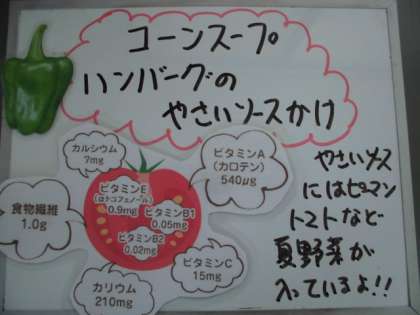 コーンスープ
ハンバーグの
やさいソースかけ
カルシウム
7mg
ビタミンA
(カロテン)
540μg
ビタミンE
(αトコフェノール)
0.9mg
ビタミンB1
0.05mg
ビタミンB2
0.02mg
食物繊維
1.0g
ビタミンC
15mg
カリウム
210mg
やさいソース
にはピーマン
トマトなど
夏野菜が
入っているよ!!